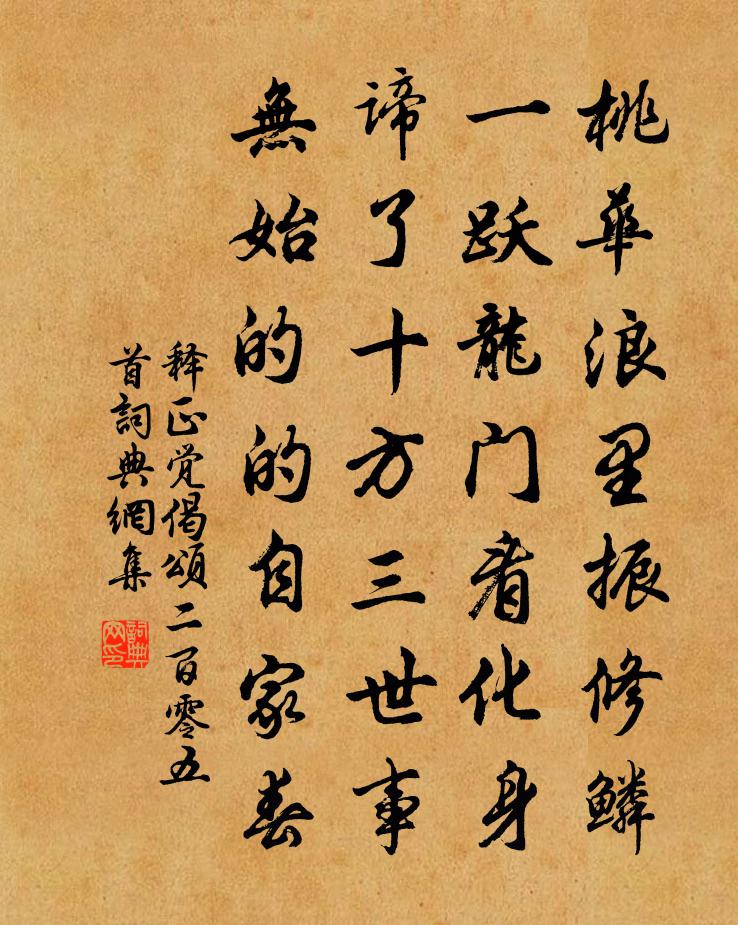 桃華浪里振修鱗
一跃龍门看化身
谛了十方三世事
無始的的自家春
释正觉偈頌二百零五
首詞典網集
詞典
网印